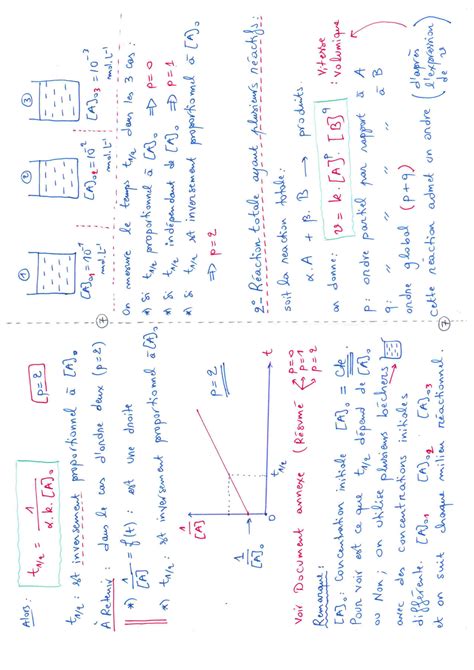 Alors : t₁/₂ = 1 / α.k.[A]₀ [p=2]
t₁/₂ : est inversement proportionnel à [A]₀
À Retenir : dans le cas d'ordre deux (p=2)
*) 1/[A] = f(t) : est une droite
*) t₁/₂ : est inversement proportionnel à [A]₀
1/[A]
p=2
1/[A]₀
0
t₁/₂
t
Voir Document annexe (Résumé p=0
p=1
p=2
Remarque :
[A]₀ : Concentration initiale [A]₀ = Cte
Pour voir est ce que t₁/₂ dépend de [A]₀
ou Non ; on utilise plusieurs bechers
avec des concentrations initiales
différente. [A]₀₁ [A]₀₂ [A]₀₃
et on suit chaque milieu réactionnel.
① ② ③
[A]₀₁=10⁻¹ mol.L⁻¹ [A]₀₂=10⁻² mol.L⁻¹ [A]₀₃=10⁻³ mol.L⁻¹
⑦
On mesure le temps t₁/₂ dans les 3 cas :
*) Si t₁/₂ proportionnel à [A]₀ ⇒ p=0
*) Si t₁/₂ indépendant de [A]₀ ⇒ p=1
*) Si t₁/₂ est inversement proportionnel à [A]₀
⇒ p=2
2°- Réaction totale ayant plusieurs réactifs :
soit la reaction totale :
α.A + β.B → produits.
on donne : v = k.[A]ᵖ.[B]^q Vitesse : volumique
p : ordre partiel par rapport à A
q : " " " " à B
ordre global (p+q)
cette réaction admet un ordre (d'après l'expression de v)
⑦